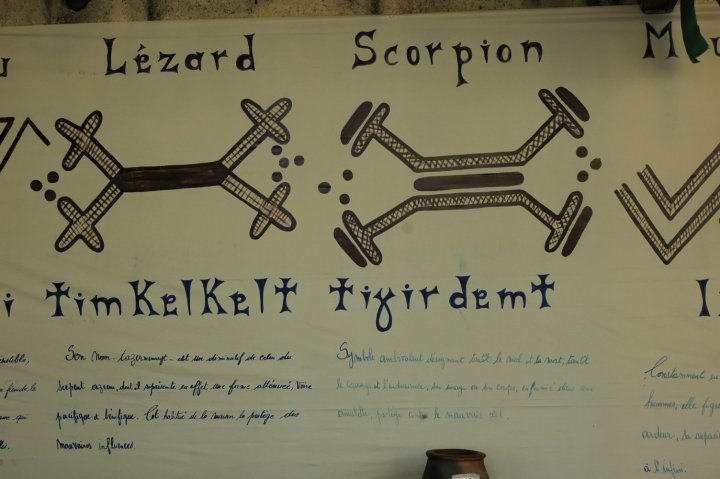 u
Lézard
Scorpion
Mu
i
timKelKelt
tiɣirdemt
I
Son nom - tazermumuyt - est un diminutif de celui du
serpent azrem, dont il représente en effet une forme atténuée, voire
pacifique et bénéfique. Cet habitué de la maison la protège des
mauvaises influences.
Symbole ambivalent désignant tantôt le mal et la mort, tantôt
le courage et l'endurance, son image ou son corps, enfermé dans une
amulette, protège contre le mauvais œil.
Constamment
hommes, elle
ardeur, sa
à l'infini.